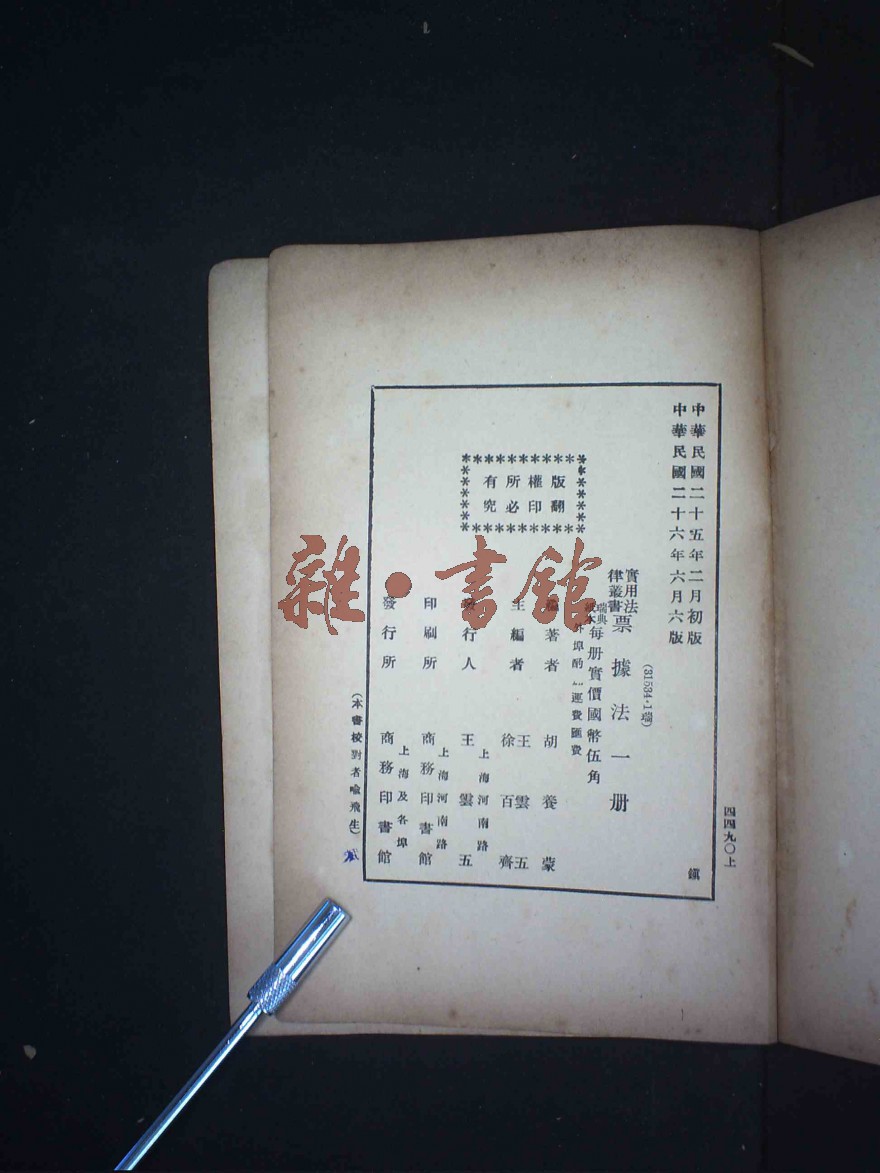 中華民國二十五年二月初版
中華民國二十六年六月六版
四四九〇上
鎭
(31534·1號)
實用法律叢書 票據法一册
瑞典紙本 每册實價國幣伍角
外埠酌加運費匯費
版權所有
翻印必究
編著者 胡養蒙
主編者 王雲五 徐百齊
發行人 王雲五
上海河南路
印刷所 商務印書館
上海河南路
發行所 商務印書館
上海及各埠
(本書校對者喻飛生)
雜·書館